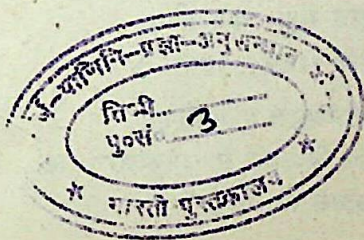 पाणिनि-प्रज्ञा-अनुसन्धान
तिथी.........
पु०सं 3
भारती पुस्तकालय